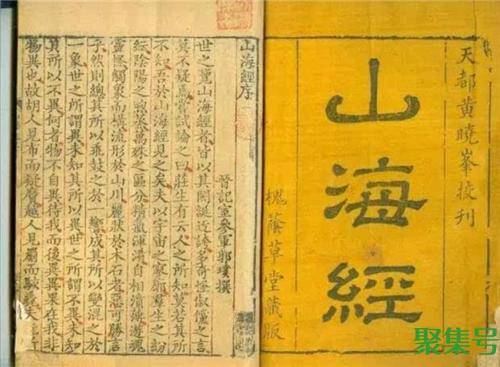 天都黄曉峯挍刊
山海經
槐蔭草堂藏版
山海經序
晉記室參軍郭璞撰
世之覽山海經者皆以其閎誕迂誇多奇怪俶儻之言
莫不疑焉嘗試論之曰莊生有云人之所知莫若其所
不知吾於山海經見之矣夫以宇宙之寥廓羣生之紛
紜陰陽之煦蒸萬殊之區分精氣渾淆自相濆薄遊魂
靈怪觸象而構流形於山川麗狀於木石者惡可勝言
乎然則總其所以乖鼓之於響成其所以變混之於
一象世之所謂異未知其所以異世之所謂不異未知
其所以不異何者物不自異待我而後異異果在我非
物異也故胡人見布而疑黂越人見罽而駭毳夫所
聚集号